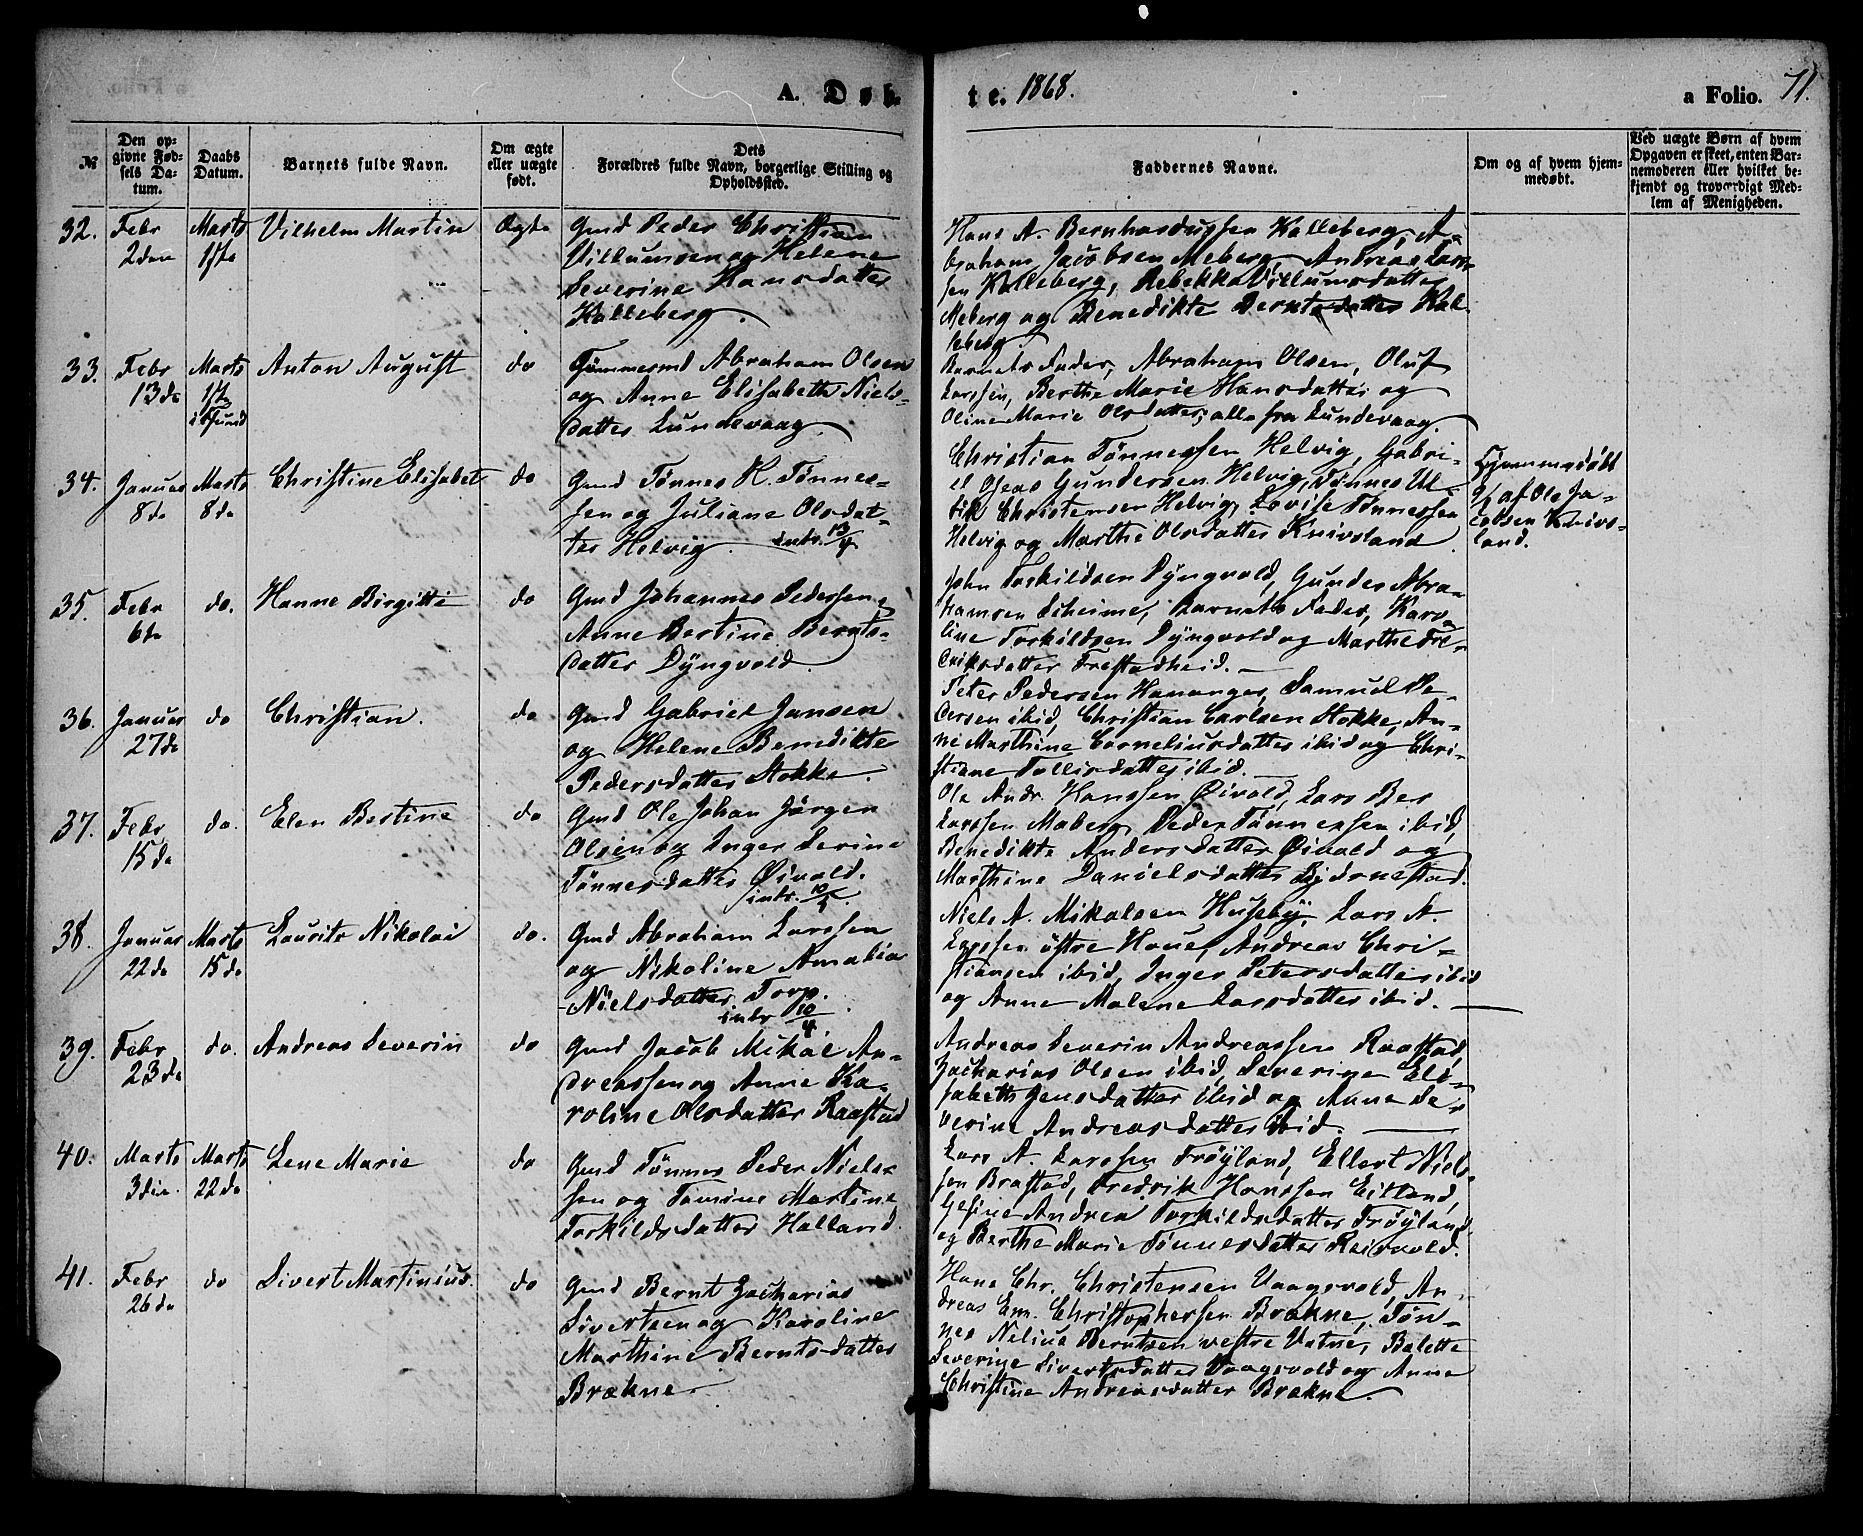 A. Døb-
te. 1868.
a Folio. 71.
№
Den op-
givne Fød-
sels Da-
tum.
Daabs
Datum.
Barnets fulde Navn.
Om ægte
eller uægte
født.
Dets
Forældres fulde Navn, borgerlige Stilling og
Opholdssted.
Faddernes Navne.
Om og af hvem hjem-
medøbt.
Ved uægte Børn af hvem
Opgaven er skeet, enten Bar-
nemoderen eller hvilket be-
kjendt og troværdigt Med-
lem af Menigheden.
32.
Febr
2den
Marts
1ste
Vilhelm Martin
Ægte
Gmd Peder Christian
Villumsen og Helene
Severine Hansdatter
Kalleberg.
Hans A. Bernhardussen Kalleberg, A-
braham Jacobsen Meberg, Andreas Lars-
sen Kalleberg, Rebekka Villumsdatter
Meberg og Benedikte Berntsdatter Kal-
leberg.
33.
Febr
13de
Marts
1ste
Anton August
do
Tømmermd Abraham Olsen
og Anne Elisabeth Niels-
datter Lundevaag.
Barnets Fader, Abraham Olsen, Oluf
Larssen, Berthe Marie Hansdatter og
Oline Marie Olsdatter, alle fra Lundevaag.
34.
Januar
8de
Marts
8de
Christine Elisabet
do
Gmd Tønnes H. Tønnes-
sen og Juliane Olsdat-
ter Helvig. intr. 13/4
Christian Tønnessen Helvig, Gabri-
el Oseas Gundersen Helvig, Tønnes Ul-
rik Christensen Helvig, Lovise Tønnessen
Helvig og Marthe Olsdatter Knivsland
Hjemmedøbt
af Ole Ja-
cobsen Knivs-
land.
35.
Febr
6te
do.
Hanne Birgitte
do
Gmd Johannes Pedersen,
Anne Bertine Bernts-
datter Dyngvold.
John Torkildsen Dyngvold, Gunder Abra-
hamsen Seheime, Barnets Fader, Karo-
line Torkildsen Dyngvold og Marthe Fre-
driksdatter Frestadheid.
36.
Januar
27de
do
Christian.
do
Gmd Gabriel Jansen
og Helene Benedikte
Pedersdatter Stokke.
Peter Pedersen Hananger, Samuel Pe-
dersen ibid, Christian Carlsen Stokke, An-
ne Marthine Corneliusdatter ibid og Chri-
stiane Tollisdatter ibid.
37.
Febr
15de
do.
Elen Bertine
do
Gmd Ole Johan Jørgen
Olsen og Inger Serine
Tønnesdatter Øivold.
intr.
Ole Andr. Hanssen Øivold, Lars Ber
Larssen Moberg, Peder Tønnessen ibid,
Benedikte Andersdatter Øivold og
Marthine Danielsdatter Bjørnestad.
38.
Januar
22de
Marts
15de
Laurits Nikolai
do.
Gmd Abraham Larssen
og Nikoline Amalia
Nielsdatter Torp.
intr 10/4
Niels A. Mikalsen Huseby, Lars A.
Larssen østre Haue, Andreas Chri-
stiansen ibid, Inger Petersdatter ibid
og Anne Malene Larsdatter ibid.
39.
Febr
23de
do.
Andreas Severin
do
Gmd Jacob Mikal An-
dreassen og Anne Ka-
roline Olsdatter Raastad
Andreas Severin Andreassen Raastad,
Zacharias Olsen ibid, Severine Eli-
sabeth Jensdatter ibid og Anne Se-
verine Andreasdatter ibid.
40.
Marts
3die
Marts
22de
Lene Marie
do
Gmd Tønnes Peder Niels-
sen og Tomine Martine
Torkildsdatter Halland.
Lars A. Larssen Frøyland, Ellert Niels-
sen Brastad, Fredrik Hanssen Eitland,
Gesine Andrea Torkildsdatter Frøyland
og Berthe Marie Tønnesdatter Reisvold.
41.
Febr
26de
do
Sivert Martinius.
do
Gmd Bernt Zacharias
Sivertsen og Karoline
Marthine Berntsdatter
Brækne.
Hans Chr. Christensen Vaagsvold, An-
dreas Em. Christophersen Brækne, Tøn-
nes Nelius Berntsen vestre Vatne, Balette
Severine Sivertsdatter Vaagsvold og Anne
Christine Andreasdatter Brækne.